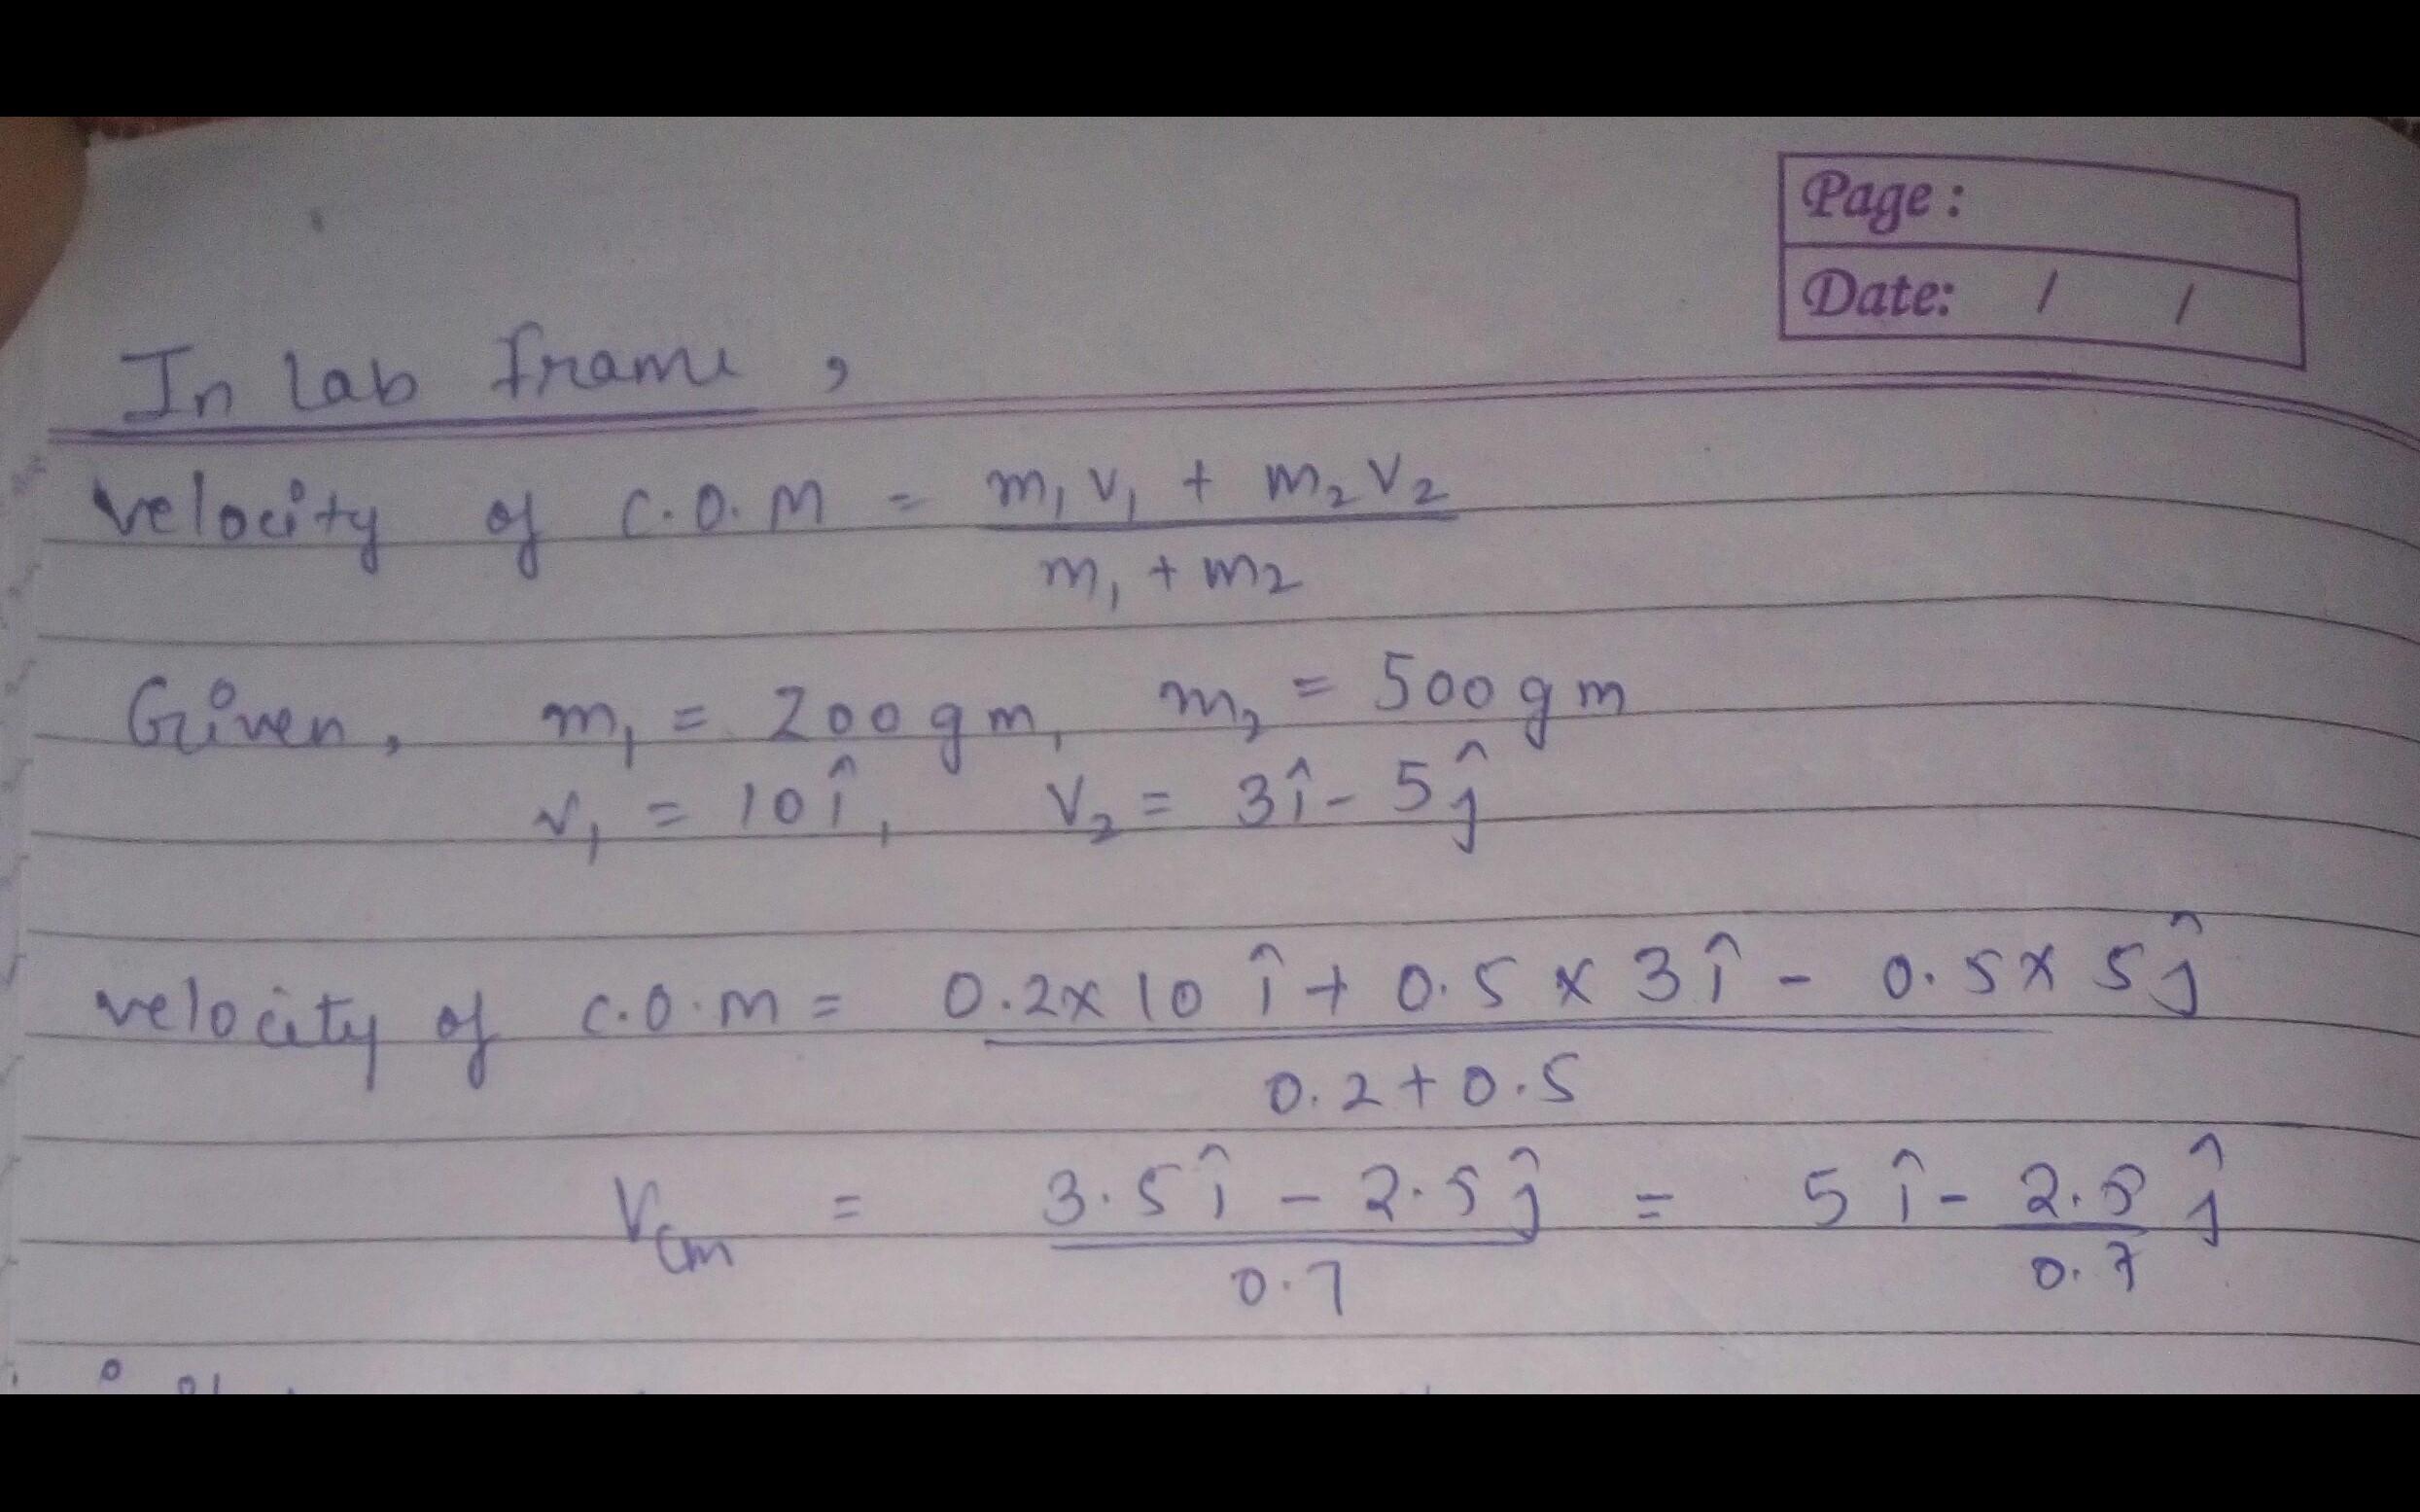 Page:
Date: / /
In lab frame,
velocity of C.O.M = m₁v₁ + m₂v₂
m₁ + m₂
Given, m₁ = 200gm, m₂ = 500gm
v₁ = 10î, v₂ = 3î - 5ĵ
velocity of C.O.M = 0.2x10 î + 0.5 x 3î - 0.5x 5ĵ
0.2+0.5
Vcm = 3.5î - 2.5ĵ = 5î - 2.5 ĵ
0.7 0.7